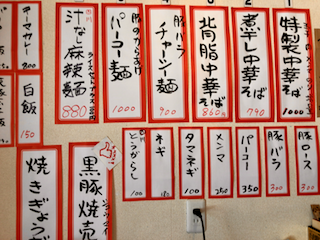 特製中華そば
1000
煮干し中華そば
790
北背脂中華そば
860
豚バラ
チャーシュー麺
900
豚のからあげ
パーコー麺
1000
汁なし麻辣麺
ライスセットプラス
880
チーマカレー
白飯
150
豚ロース
300
豚バラ
300
パーコー
350
メンマ
250
タマネギ
100
ネギ
150
とうがらし
100
黒豚焼売
焼きぎょうざ